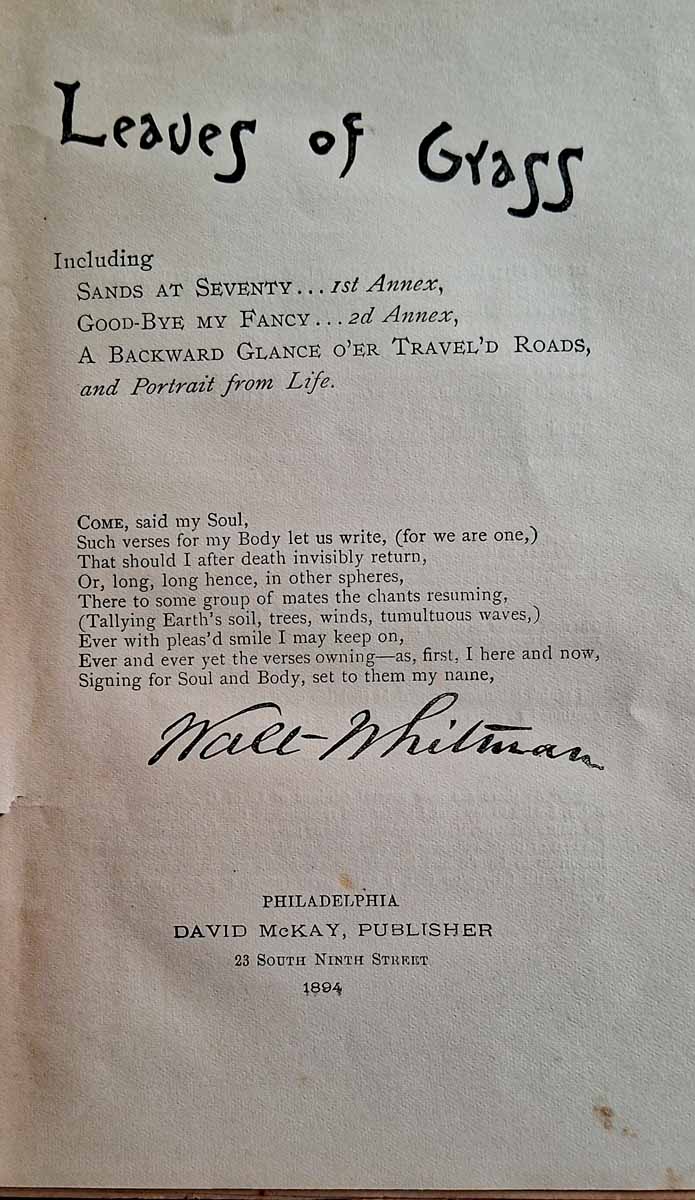 Leaves of Grass
Including
SANDS AT SEVENTY... 1st Annex,
GOOD-BYE MY FANCY... 2d Annex,
A BACKWARD GLANCE O'ER TRAVEL'D ROADS,
and Portrait from Life.
COME, said my Soul,
Such verses for my Body let us write, (for we are one,)
That should I after death invisibly return,
Or, long, long hence, in other spheres,
There to some group of mates the chants resuming,
(Tallying Earth's soil, trees, winds, tumultuous waves,)
Ever with pleas'd smile I may keep on,
Ever and ever yet the verses owning—as, first, I here and now,
Signing for Soul and Body, set to them my name,
Walt Whitman
PHILADELPHIA
DAVID McKAY, PUBLISHER
23 SOUTH NINTH STREET
1894